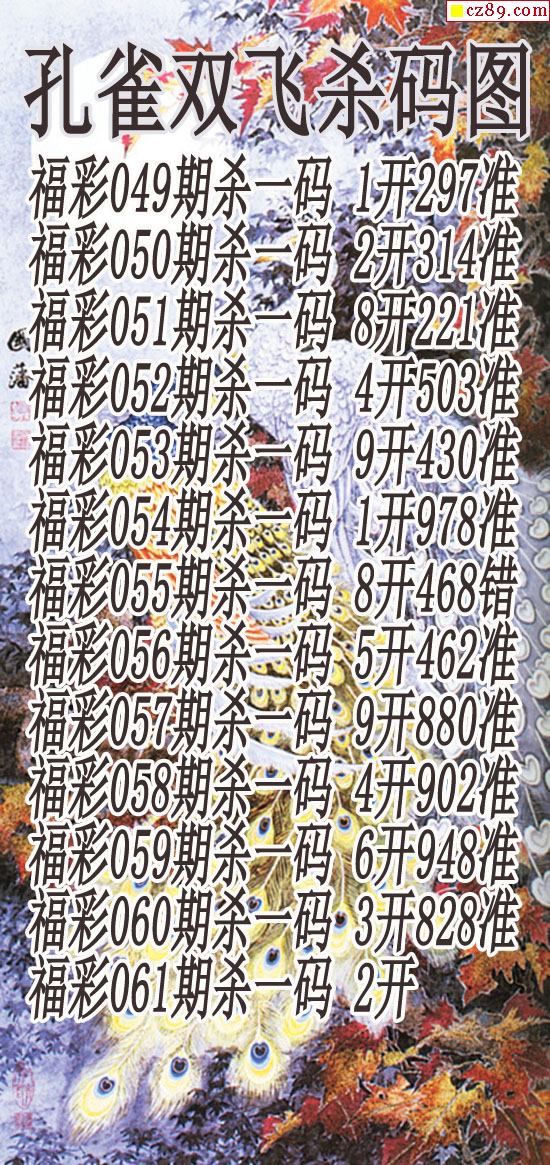 cz89.com
孔雀双飞杀码图
福彩049期杀一码 1开297准
福彩050期杀一码 2开314准
福彩051期杀一码 8开221准
福彩052期杀一码 4开503准
福彩053期杀一码 9开430准
福彩054期杀一码 1开978准
福彩055期杀一码 8开468错
福彩056期杀一码 5开462准
福彩057期杀一码 9开880准
福彩058期杀一码 4开902准
福彩059期杀一码 6开948准
福彩060期杀一码 3开828准
福彩061期杀一码 2开